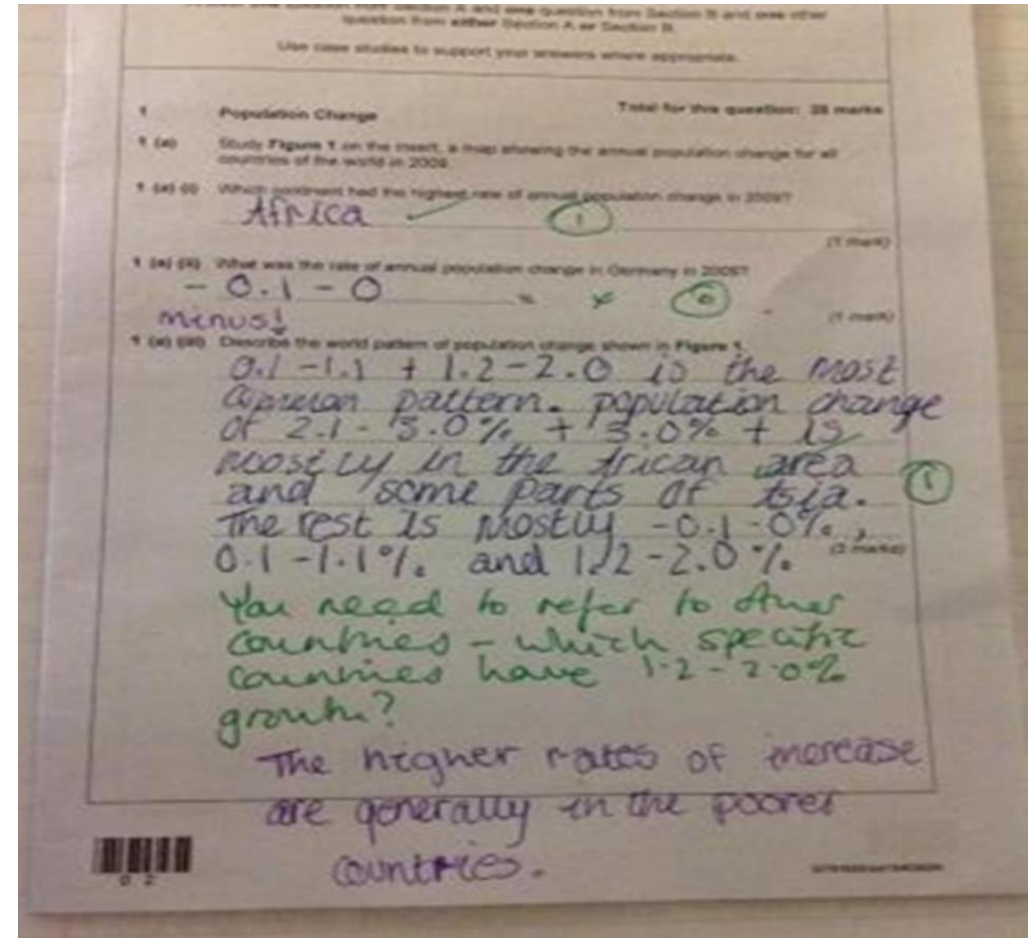 question from either Section A or Section B.
Use case studies to support your answers where appropriate.
1 Population Change Total for this question: 25 marks
1 (a) Study Figure 1 on the insert, a map showing the annual population change for all
countries of the world in 2009.
1 (a) (i) Which continent had the highest rate of annual population change in 2009?
Africa ✓ 1
(1 mark)
1 (a) (ii) What was the rate of annual population change in Germany in 2009?
- 0.1 - 0 % x 0
(1 mark)
minus!
1 (a) (iii) Describe the world pattern of population change shown in Figure 1.
0.1 - 1.1 + 1.2 - 2.0 is the most
common pattern. population change
of 2.1 - 3.0% + 3.0% + is
mostly in the African area
and some parts of Asia. 1
The rest is mostly -0.1-0%,
0.1-1.1% and 1.2-2.0%. (2 marks)
You need to refer to other
countries - which specific
countries have 1.2-2.0%
growth?
The higher rates of increase
are generally in the poorer
countries.
0 2